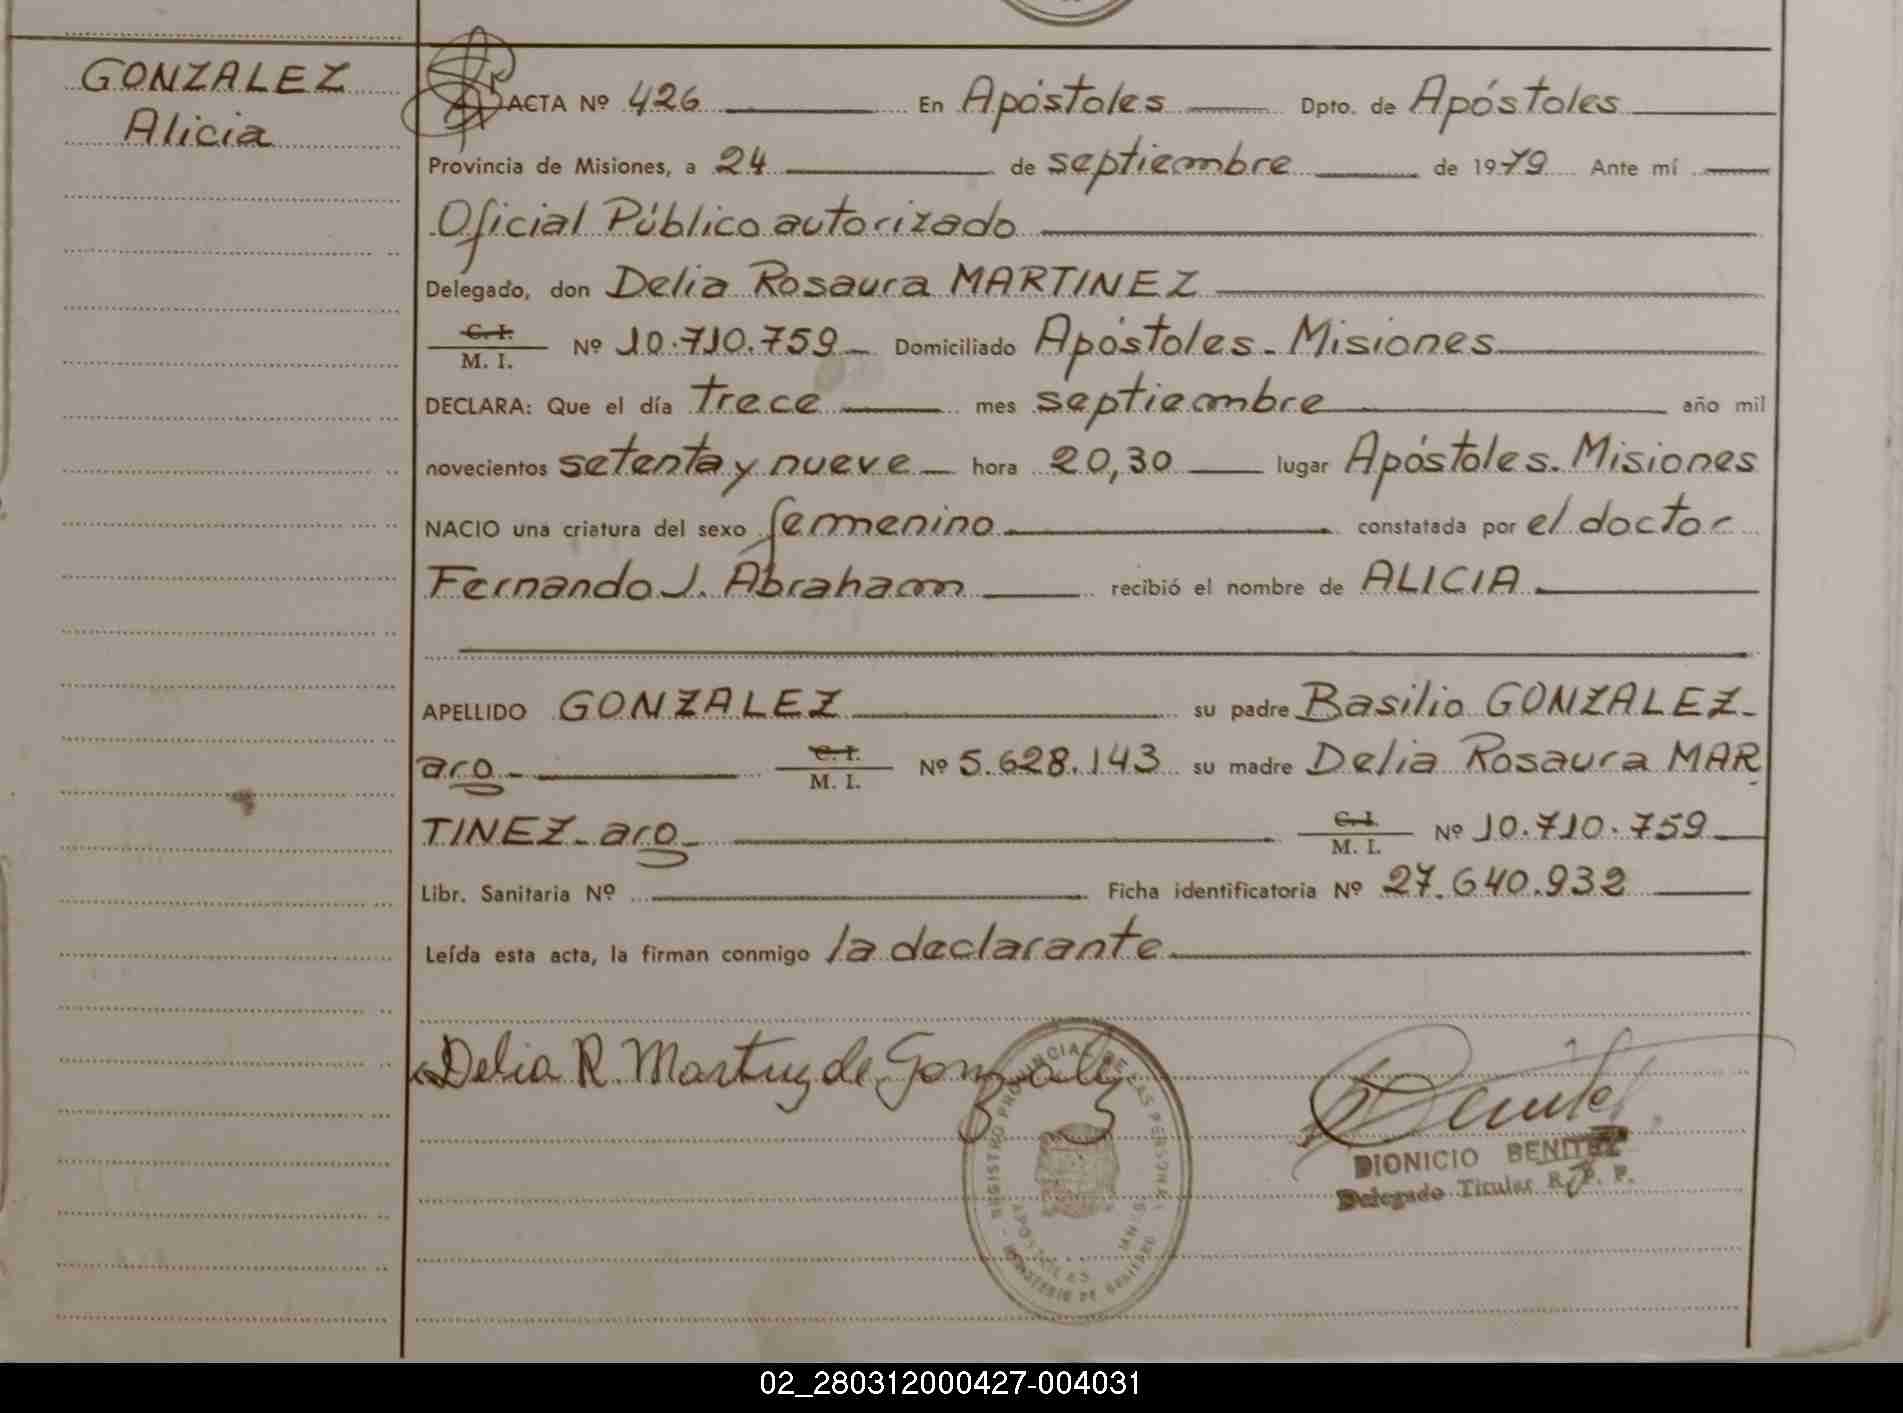 GONZALEZ
Alicia
ACTA Nº 426 En Apóstoles Dpto. de Apóstoles
Provincia de Misiones, a 24 de septiembre de 1979 Ante mí
Oficial Público autorizado
Delegado, don Delia Rosaura MARTINEZ
C. I.
M. I. Nº 10.710.759 Domiciliado Apóstoles - Misiones
DECLARA: Que el día trece mes septiembre año mil
novecientos setenta y nueve hora 20,30 lugar Apóstoles. Misiones
NACIO una criatura del sexo femenino constatada por el doctor
Fernando J. Abraham recibió el nombre de ALICIA
APELLIDO GONZALEZ su padre Basilio GONZALEZ-
aro C. I.
M. I. Nº 5.628.143 su madre Delia Rosaura MAR
TINEZ - aro C. I.
M. I. Nº 10.710.759
Libr. Sanitaria Nº Ficha identificatoria Nº 27.640.932
Leída esta acta, la firman conmigo la declarante
Delia R. Martinez de Gonzalez
REGISTRO PROVINCIAL DE LAS PERSONAS
APOSTOLES
MINISTERIO DE GOBIERNO
DIONICIO BENITEZ
Delegado Titular R. P. P.
02_280312000427-004031